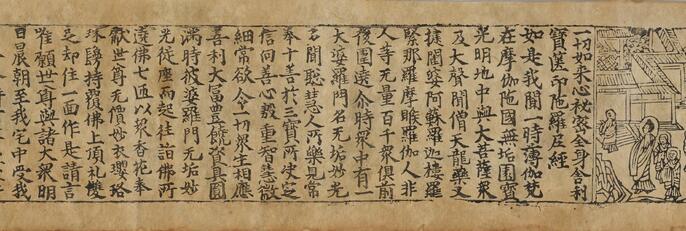 一切如来心秘密全身舍利
寶篋印陀羅尼經
如是我聞一時薄伽梵
在摩伽陁國無垢園寶
光明池中與大菩薩衆
及大聲聞僧天龍藥叉
揵闥婆阿蘇羅迦樓羅
緊那羅摩睺羅伽人非
人等無量百千衆俱前
後圍遶尒時衆中有一
大婆羅門名無垢妙光
多聞聰慧人所樂見常
奉十善於三寶所決定
信向善心殷重智慧微
細常欲令一切衆生相應
善利大冨豊饒資具圓
滿時彼婆羅門無垢妙
光從座而起往詣佛所
遶佛七匝以衆香花奉
獻世尊無價妙衣瓔珞
珠鬘持覆佛上頂礼雙
足却住一面作是請言
唯願世尊與諸大衆明
日晨朝至我宅中受我